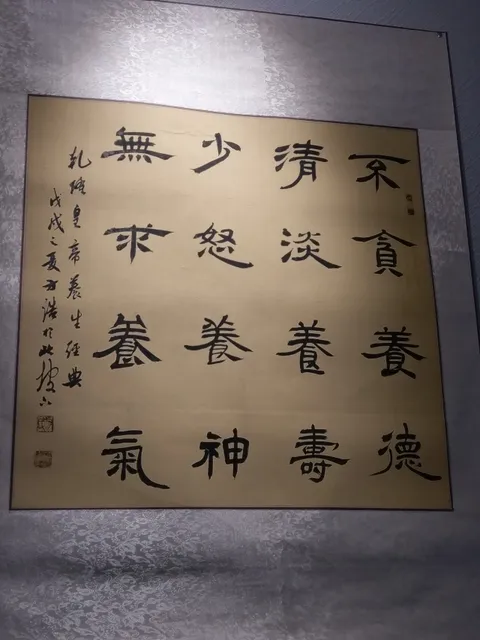 不貪養德
清淡養壽
少怒養神
無求養氣
乾隆皇帝養生經典
戊戌之夏